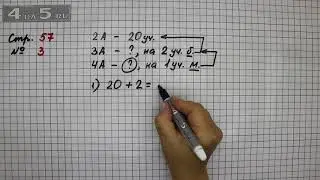 4 A 5 RU
Стр. 57
№ 3
2А – 20 уч.
3А – ?, на 2 уч. б.
4А – ?, на 1 уч. м.
1) 20 + 2 =